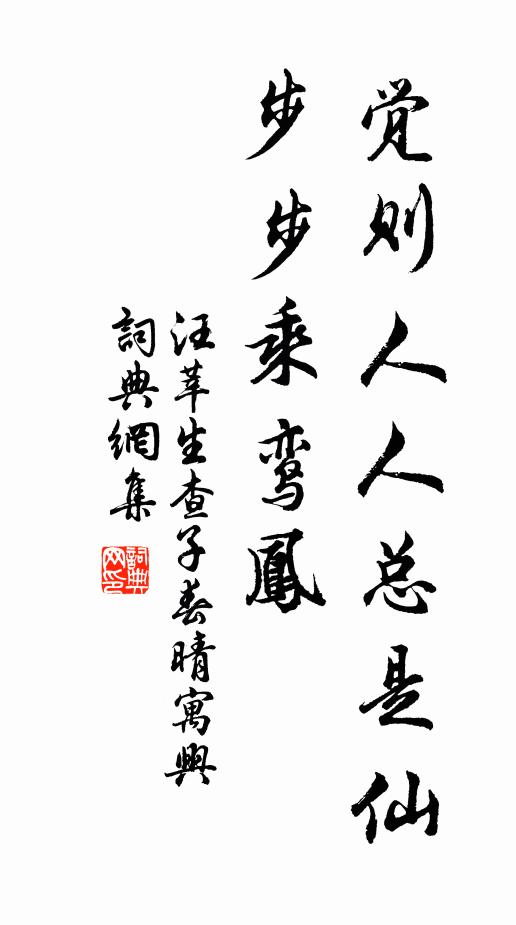 觉则人人总是仙
步步乘鸾鳳
汪莘生查子春晴寓興
詞典網集
詞典網印